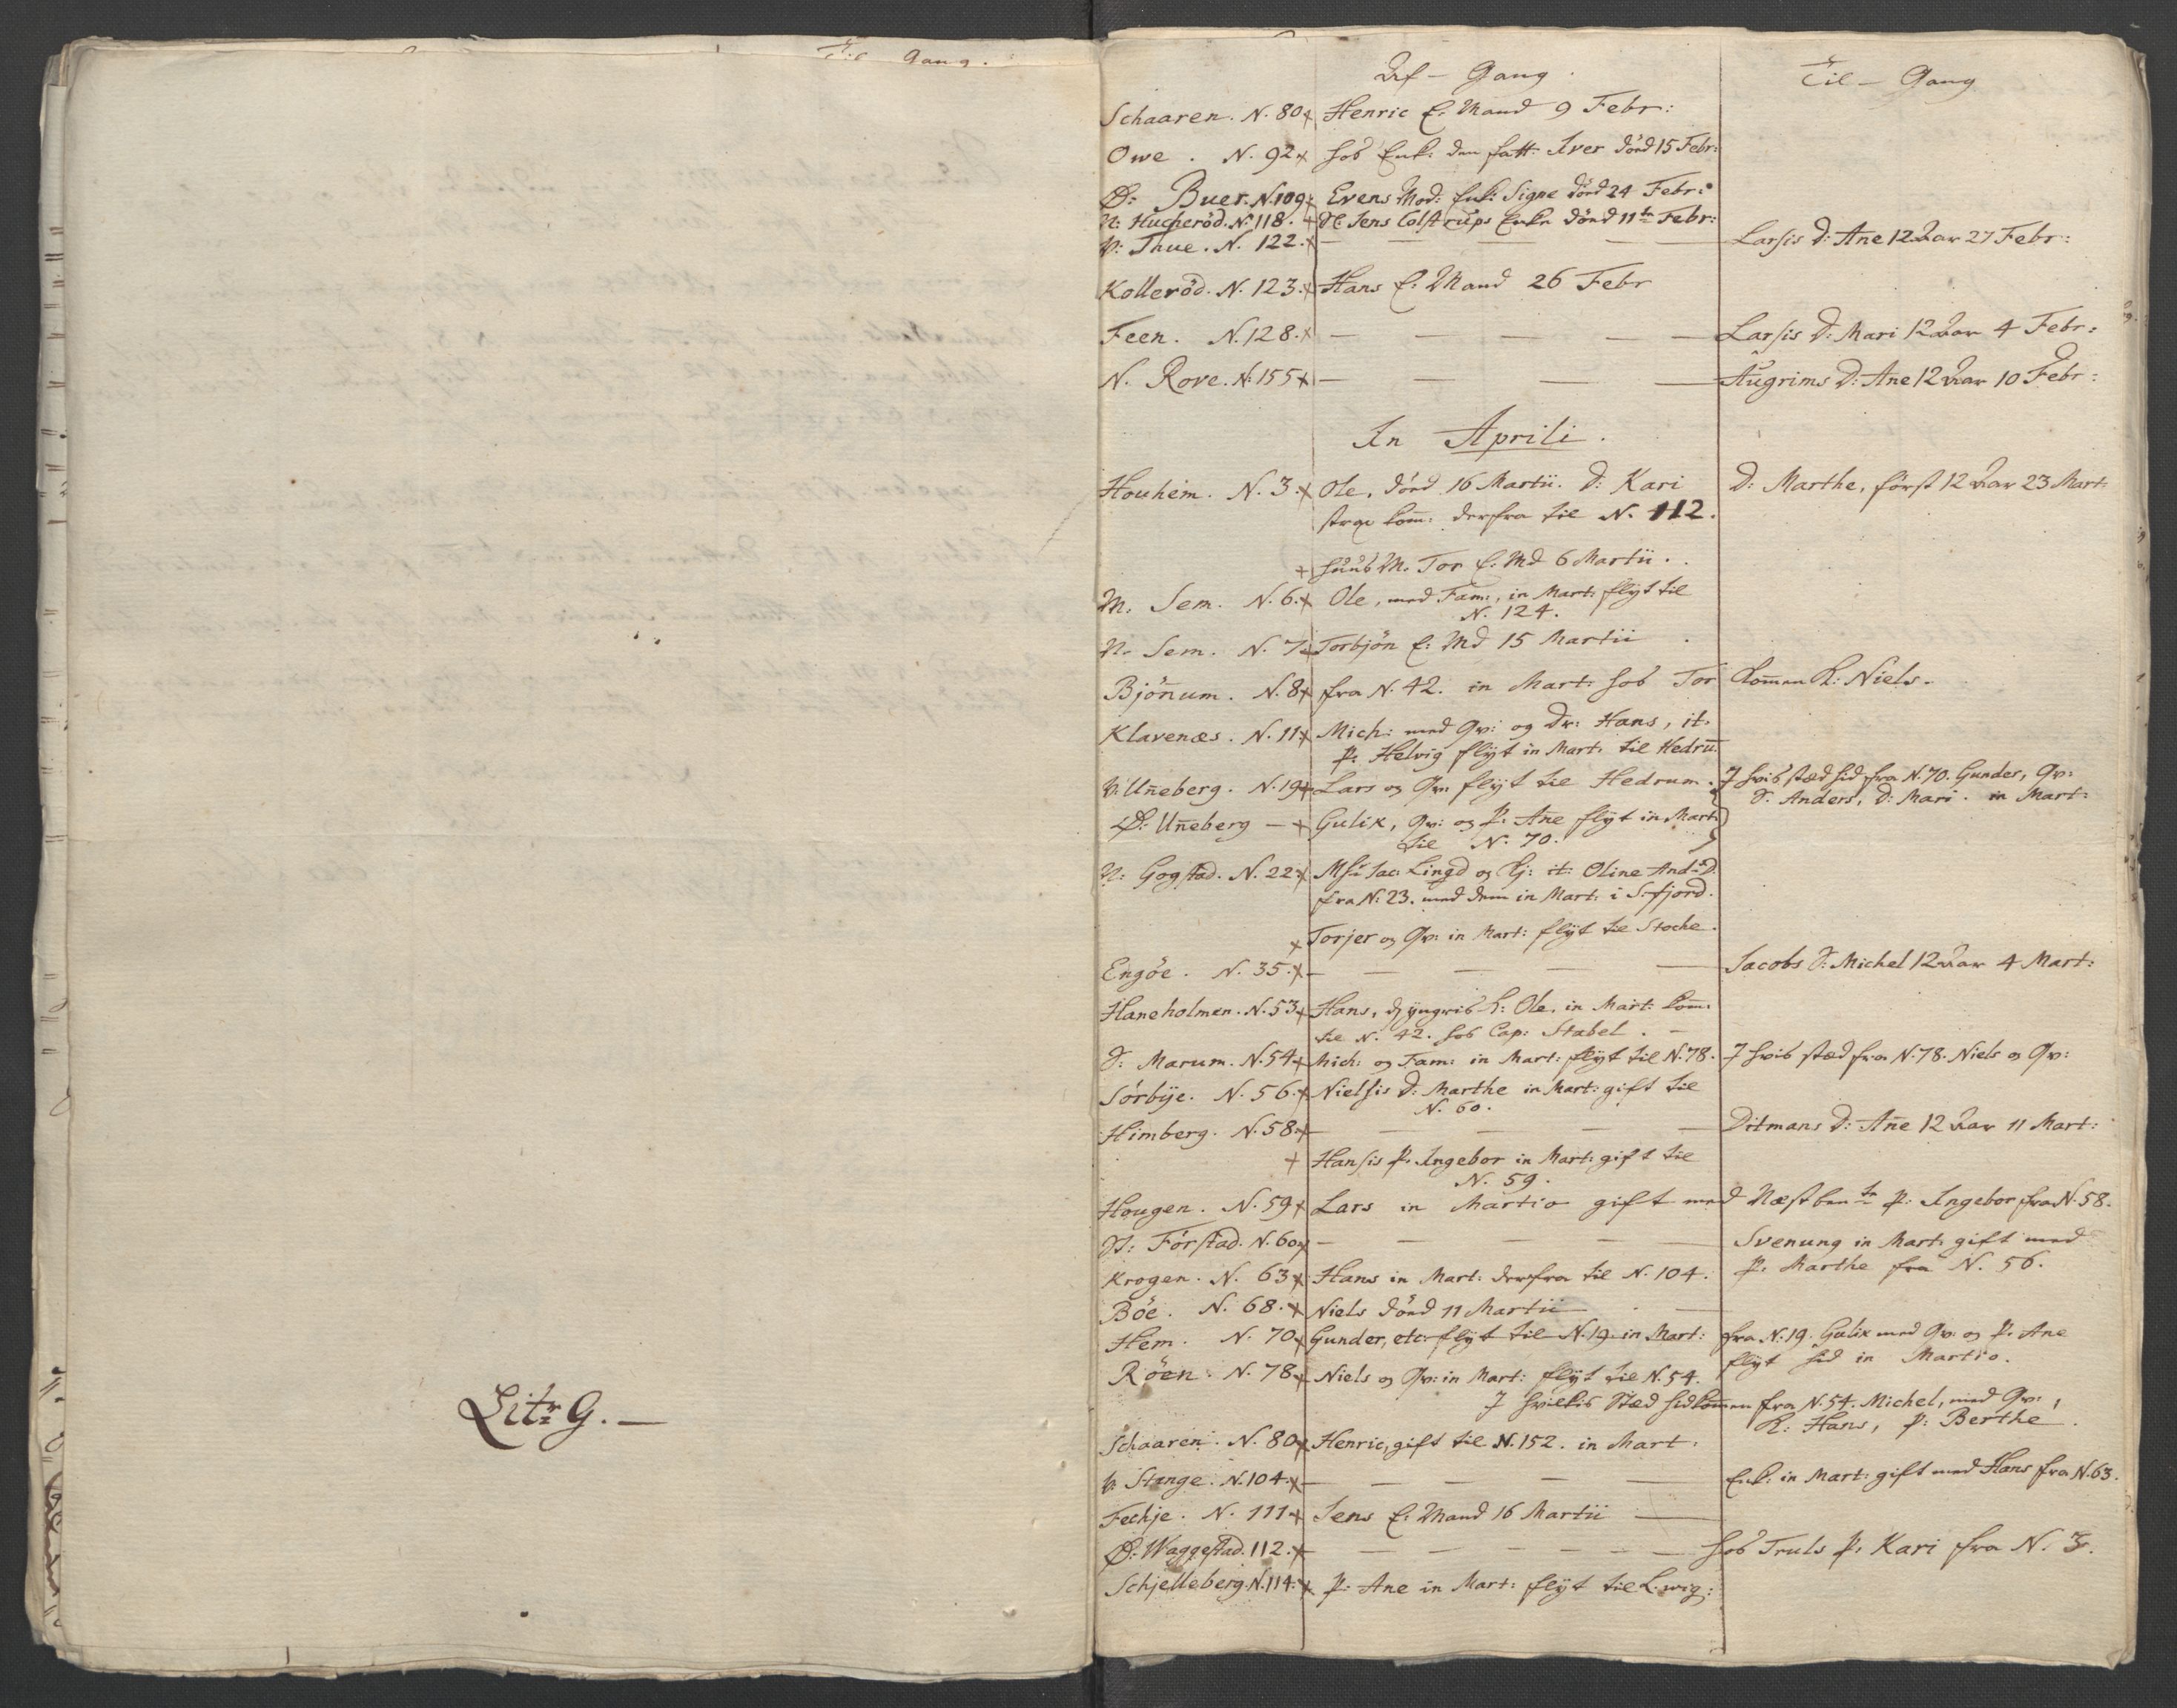 Til Gang.
Litr G. —
Af - Gang. Til - Gang
Schaaren. N. 80 + Henric E. Mand 9 Febr:
Owe. N. 92 + hos Enk: den fatt: Iver död 15 Febr:
Ø: Buer. N. 109 + Evens Mod: Enk: Signe död 24 Febr:
N: Hucheröd. N. 118. + Sl. Jens Colstrups Enke död 11te Febr:
V: Thue. N. 122. + — — — — Larsis D: Ane 12 Aar 27 Febr:
Kolleröd. N. 123. + Hans E. Mand 26 Febr
Feen. N. 128. + — — — — Larsis D: Mari 12 Aar 4 Febr:
N. Rove. N. 155 + — — — — Augrims D: Ane 12 Aar 10 Febr:
In Aprili.
Houhem. N. 3. + Ole, död 16 Martii. D: Kari D: Marthe, först 12 Aar 23 Mart:
strax kom̄: derfra til N. 112.
+ huus M. Tor E: Md 6 Martii.
M. Sem. N. 6. + Ole, med Fam:, in Mart: flyt til
N. 124.
N. Sem. N. 7. + Torbjön E: Md 15 Martii
Bjōnum. N. 8 + fra N. 42. in Mart: hos Tor kom̄en K: Niels.
Klavenæs. N. 11 + Mich: med Qv: og Dr: Hans, it.
P. Helvig flyt in Mart. til Hedrū.
V. Un̄eberg. N. 19 + Lars og Qv: flyt til Hedrum. I hvis stæd hid fra N. 70. Gunder, Qv:
S: Anders, D: Mari. in Mart:
Ø: Un̄eberg — + Gulix, Qv: og P: Ane flyt in Mart:
til N. 70.
N: Gogstad. N. 22 + Msr Jac: Lingd og Kj: it: Oline And: D.
fra N. 23. med dem in Mart. i S.fjord.
+ Torjer og Qv: in Mart: flyt til Stoche.
Engöe. N. 35. + — — — — Jacobs S: Michel 12 Aar 4 Mart:
Haneholmen. N. 53 + Hans, dj yngris K: Ole, in Mart: kom̄:
til N. 42. hos Cap: Stabel. —
S: Marum. N. 54 + Mich: og Fam: in Mart: flyt til N. 78. I hvis stæd fra N. 78. Niels og Qv:
Sörbÿe. N. 56. + Nielsis D: Marthe in Mart: gift til
N. 60.
Himberg. N. 58 + — — — — Ditmans D: An̄e 12 Aar 11 Mart:
+ Hansis P. Ingebor in Mart: gift til
N. 59.
Hougen. N. 59 + Lars in Martio gift med Næstben: te P: Ingebor fra N. 58.
N: Förstad. N. 60 + — — — — Svenung in Mart: gift med
P. Marthe fra N. 56.
Krogen. N. 63 + Hans in Mart: derfra til N. 104.
Böe. N. 68. + Niels död 11 Martii —
Hem. N. 70 + Gunder, etc: flyt til N. 19. in Mart: fra N. 19. Gulix med Qv: og P. Ane
flyt hid in Martio.
Röen. N. 78 + Niels og Qv: in Mart: flyt til N. 54.
I hvilkis Stæd hidkom̄en fra N. 54. Michel, med Qv:,
K: Hans, P: Berthe.
Schaaren. N. 80 + Henric, gift til N. 152. in Mart.
V. Stange. N. 104. + — — — — Enk: in Mart: gift med Hans fra N. 63.
Fechje. N. 111 + Jens E. Mand 16 Martii —
Ø: Waggestad. 112. + — — — — hos Truls P. Kari fra N. 3.
Schjelleberg. N. 114. + P: Ane in Mart: flyt til L.wig: